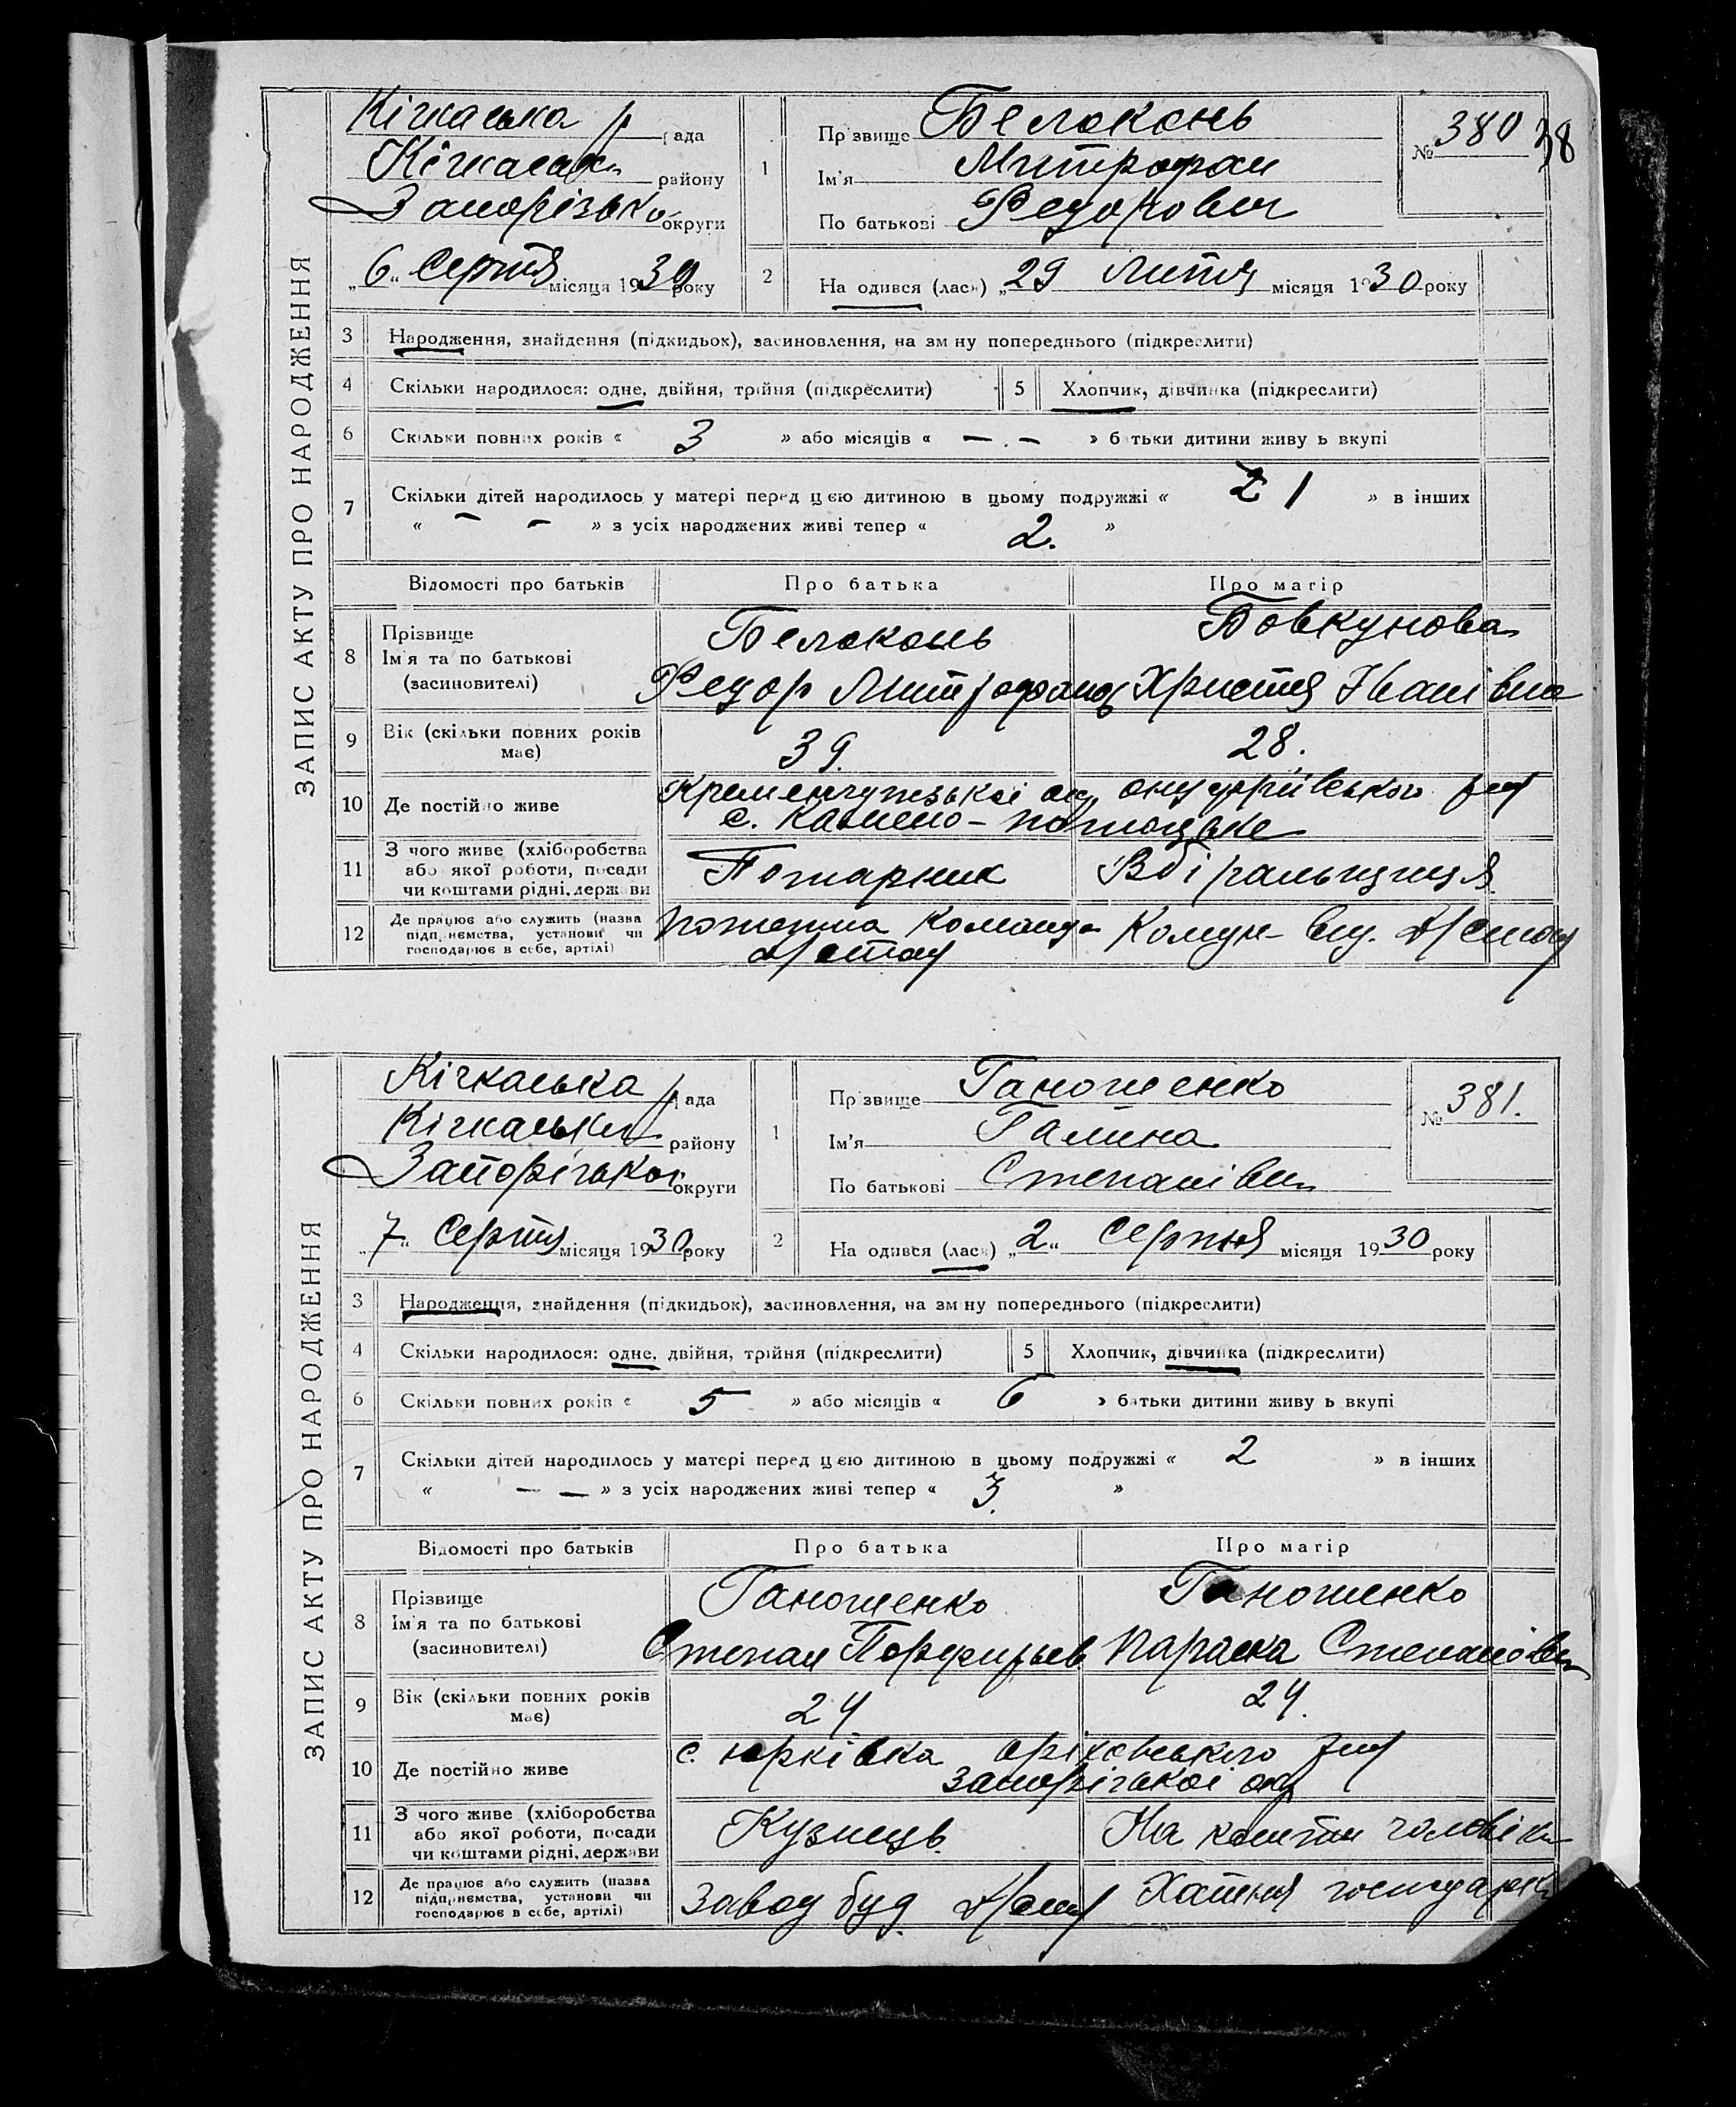 ЗАПИС АКТУ ПРО НАРОДЖЕННЯ
Кічкаська рада
Кічкаськ району
Запорізько округи
„6“ Серпня місяця 1930 року
1
Прізвище Белоконь
Ім'я Митрофан
По батькові Федорович
№ 380
38
2
На одився (лась) „29 Липня місяця 1930 року
3 Народження, знайдення (підкидьок), засиновлення, на зм ну попереднього (підкреслити)
4 Скільки народилося: одне, двійня, трійня (підкреслити)
5 Хлопчик, дівчинка (підкреслити)
6 Скільки повних років « 3 » або місяців « — . — » батьки дитини живу ь вкупі
7 Скільки дітей народилось у матері перед цією дитиною в цьому подружжі « 2 1 » в інших
« — — » з усіх народжених живі тепер « 2. »
Відомості про батьків Про батька Про матір
8 Прізвище
Ім'я та по батькові
(засиновителі)
Белоконь
Федор Митрофанов
Бовкунова
Христя Іванівна
9 Вік (скільки повних років має) 39. 28.
10 Де постійно живе Кременчугзькоі ок, онуфріївського рну
с. Камено-потоцьке
11 З чого живе (хліборобства або якої роботи, посади чи коштами рідні, держави
Пожарник Вбіральщиця
12 Де працює або служить (назва підприємства, установи чи господарює в себе, артілі)
Пожежна команда
Д/стоу
Комун- від. Д/стоу
ЗАПИС АКТУ ПРО НАРОДЖЕННЯ
Кічкаська рада
Кічкаськ району
Запорізькоі округи
„7“ Серпня місяця 1930 року
1
Прізвище Ганошенко
Ім'я Галина
По батькові Степанівна
№ 381.
2
На одився (лася) „2“ Серпня місяця 1930 року
3 Народження, знайдення (підкидьок), засиновлення, на зм ну попереднього (підкреслити)
4 Скільки народилося: одне, двійня, трійня (підкреслити)
5 Хлопчик, дівчинка (підкреслити)
6 Скільки повних років « 5 » або місяців « 6 » батьки дитини живу ь вкупі
7 Скільки дітей народилось у матері перед цією дитиною в цьому подружжі « 2 » в інших
« — — » з усіх народжених живі тепер « 3. »
Відомості про батьків Про батька Про матір
8 Прізвище
Ім'я та по батькові
(засиновителі)
Ганошенко
Степан Порфирьев
Ганошенко
Параска Степанівн
9 Вік (скільки повних років має) 24 24.
10 Де постійно живе с. юрківка оріховського рну
запорізькоі ок
11 З чого живе (хліборобства або якої роботи, посади чи коштами рідні, держави
Кузнець. На кошти чоловіка
12 Де працює або служить (назва підприємства, установи чи господарює в себе, артілі)
Завод буд. Хатня господарка